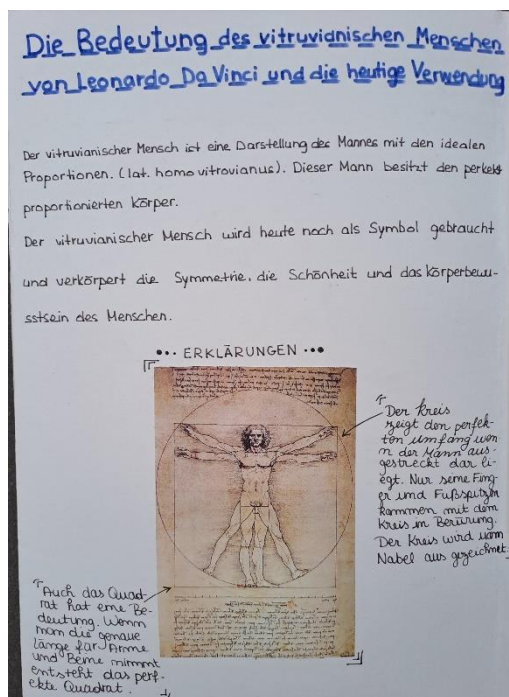 Die Bedeutung des vitruvianischen Menschen
von Leonardo Da Vinci und die heutige Verwendung
Der vitruvianischer Mensch ist eine Darstellung des Mannes mit den idealen
Proportionen. (lat. homo vitrovianus). Dieser Mann besitzt den perfekt
proportionierten Körper.
Der vitruvianischer Mensch wird heute noch als Symbol gebraucht
und verkörpert die Symmetrie, die Schönheit und das Körperbewu-
sstsein des Menschen.
••• ERKLÄRUNGEN •••
Der Kreis
zeigt den perfek-
ten Umfang wen
n der Mann aus-
gestreckt dar li-
egt. Nur seine Fing-
er und Fußspitzen
kommen mit dem
Kreis in Berürung.
Der Kreis wird vom
Nabel aus gezeichnet.
Auch das Quad-
rat hat eine Be-
deutung. Wenn
man die genaue
länge für Arme
und Beine nimmt
entsteht das perf-
ekte Quadrat.